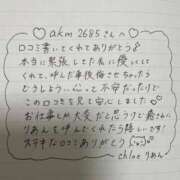 ♡ akm 2685さんへ ♡
口コミ書いてくれてありがとう
本当に緊張してた私に優しいし
てくれて、呼んだ事後悔させちゃったら
どうしよう…って不安だったけど
この口コミを見て安心しました♡
お仕事が大変だと思うけど癒さんに
りあんを呼んでくれたら嬉しいです！
ステキな口コミありがとう
chloe りあん♡